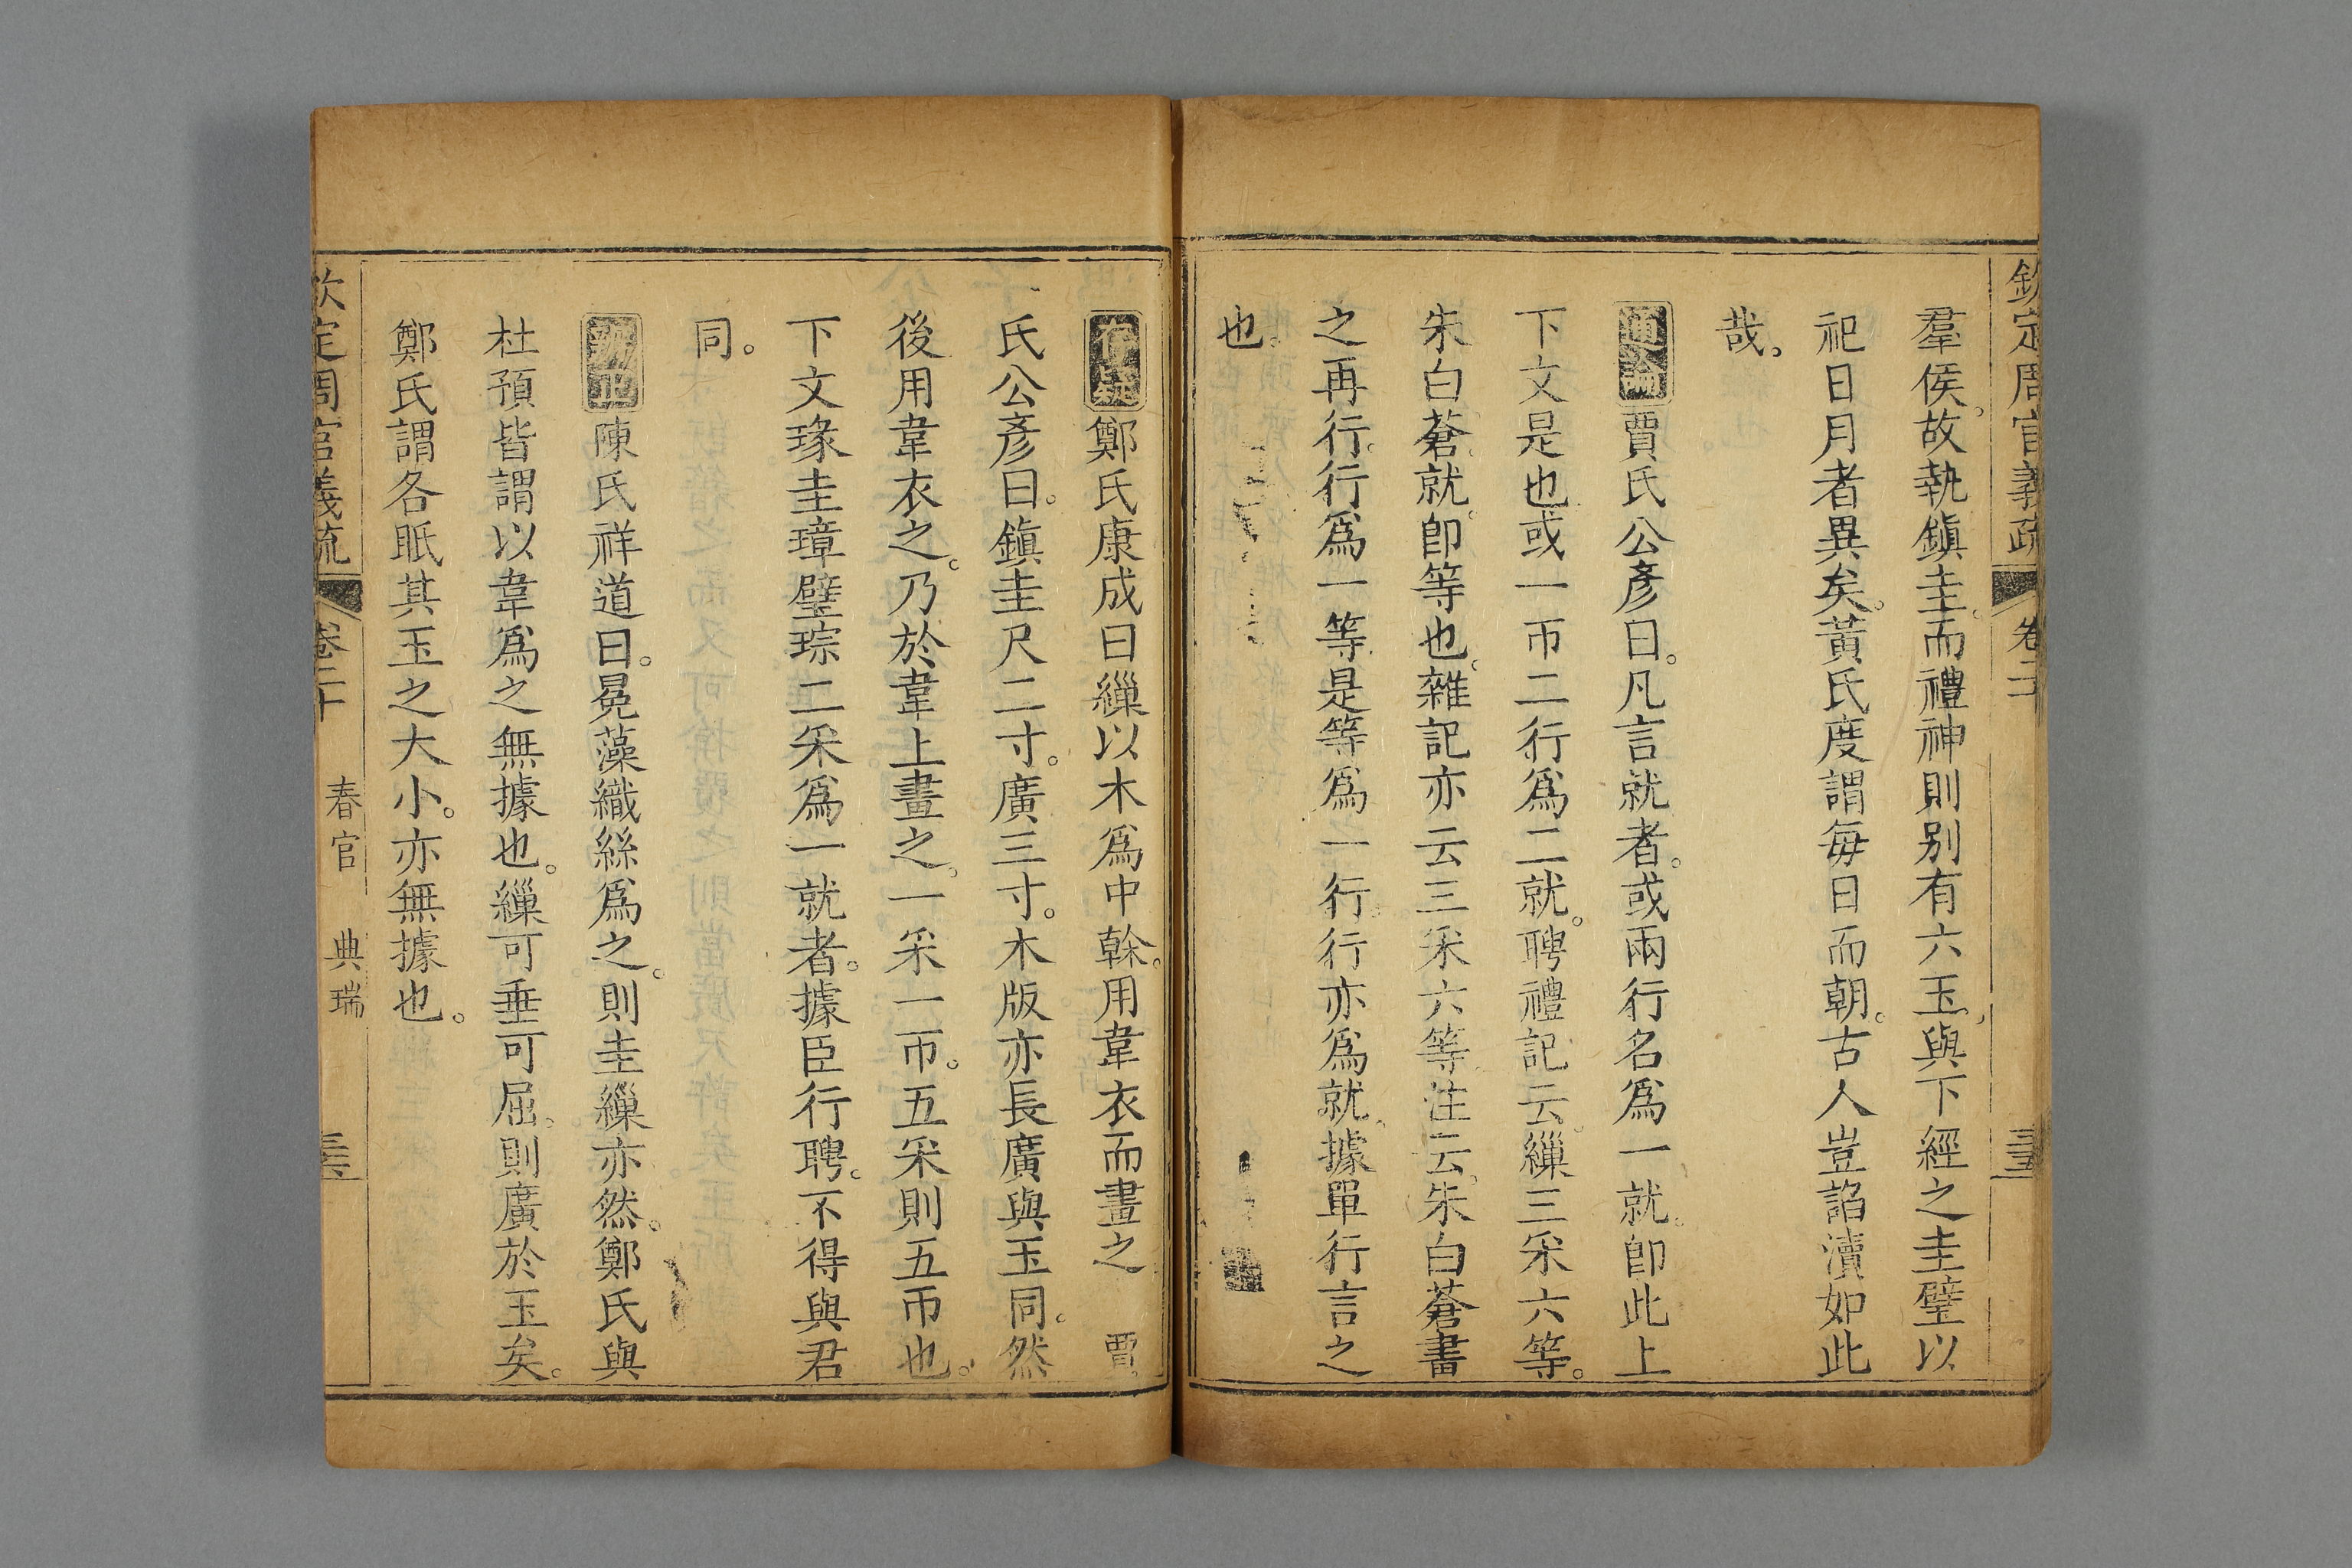 欽定周官義疏 卷二十
羣侯。故執鎭圭。而禮神則别有六玉。與下經之圭璧以
祀日月者異矣。黃氏度謂每日而朝。古人豈諂瀆如此
哉。
通論 賈氏公彥曰。凡言就者。或兩行名爲一就。卽此上
下文是也。或一帀二行爲二就。聘禮記云。繅三采六等。
朱白蒼就。卽等也。雜記亦云三采六等。注云。朱白蒼畫
之再行。行爲一等。是等爲一行。行亦爲就。據單行言之
也。
存疑 鄭氏康成曰繅以木爲中榦。用韋衣而畫之 賈
氏公彥曰。鎭圭尺二寸。廣三寸。木版亦長廣與玉同。然
後用韋衣之。乃於韋上畫之。一采一帀。五采則五帀也。
下文瑑圭璋璧琮二采爲一就者。據臣行聘。不得與君
同。
辨正 陳氏祥道曰。冕藻織絲爲之。則圭繅亦然。鄭氏與
杜預皆謂以韋爲之無據也。繅可垂可屈。則廣於玉矣。
鄭氏謂各眂其玉之大小。亦無據也。
欽定周官義疏 卷二十 春官 典瑞